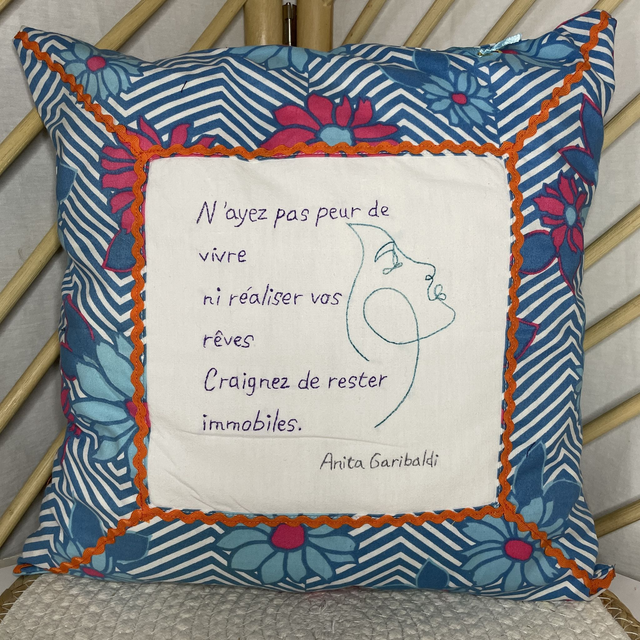 N'ayez pas peur de
vivre
ni réaliser vos
rêves
Craignez de rester
immobiles.
Anita Garibaldi